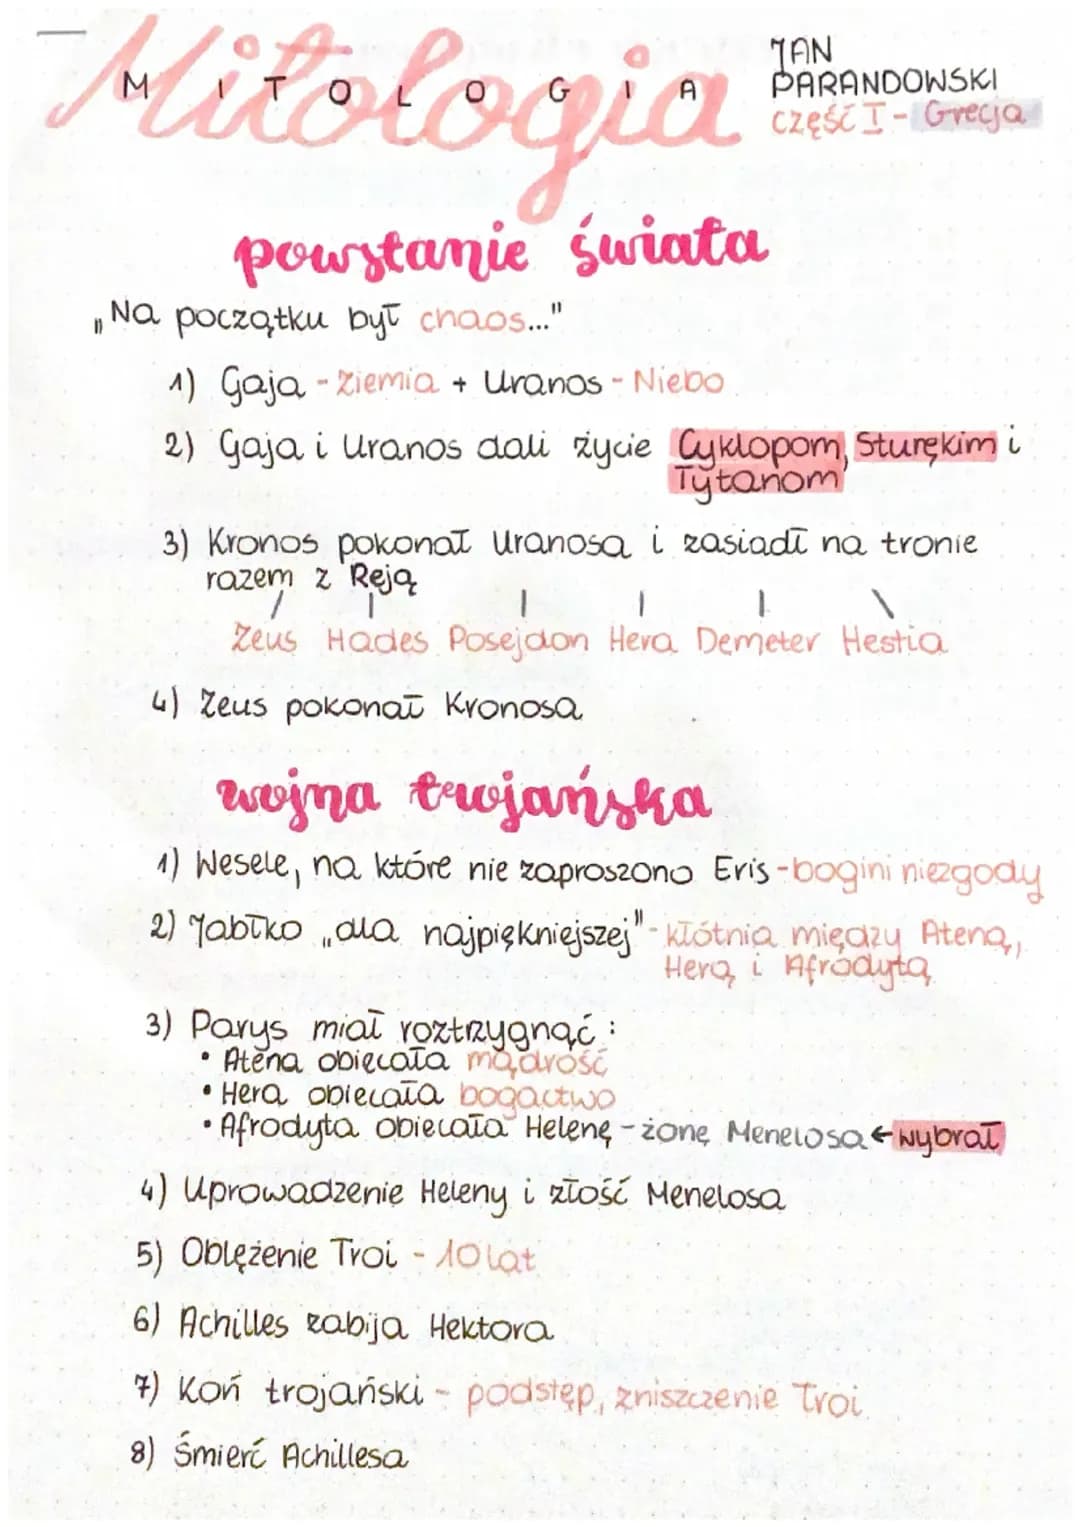 Mitologia
MITOLOGIA
JAN
PARANDOWSKI
część I - Grecja
powstanie świata
„Na początku był chaos..."
1) Gaja - Ziemia + Uranos - Niebo
2) Gaja i Uranos dali życie Cyklopom, Sturękim i
Tytanom
3) Kronos pokonał Uranosa i zasiadł na tronie
razem z Reją
Zeus Hades Posejdon Hera Demeter Hestia
4) Zeus pokonał Kronosa
wojna trojańska
1) Wesele, na które nie zaproszono Eris - bogini niezgody
2) Jabłko „dla najpiękniejszej" - kłótnia między Ateną,
Herą i Afrodytą
3) Parys miał roztrzygnąć:
• Atena obiecała mądrość
• Hera obiecała bogactwo
• Afrodyta obiecała Helenę - żonę Menelosa ← wybrał
4) Uprowadzenie Heleny i złość Menelosa
5) Oblężenie Troi - 10 lat
6) Achilles zabija Hektora
7) Koń trojański - podstęp, zniszczenie Troi
8) Śmierć Achillesa